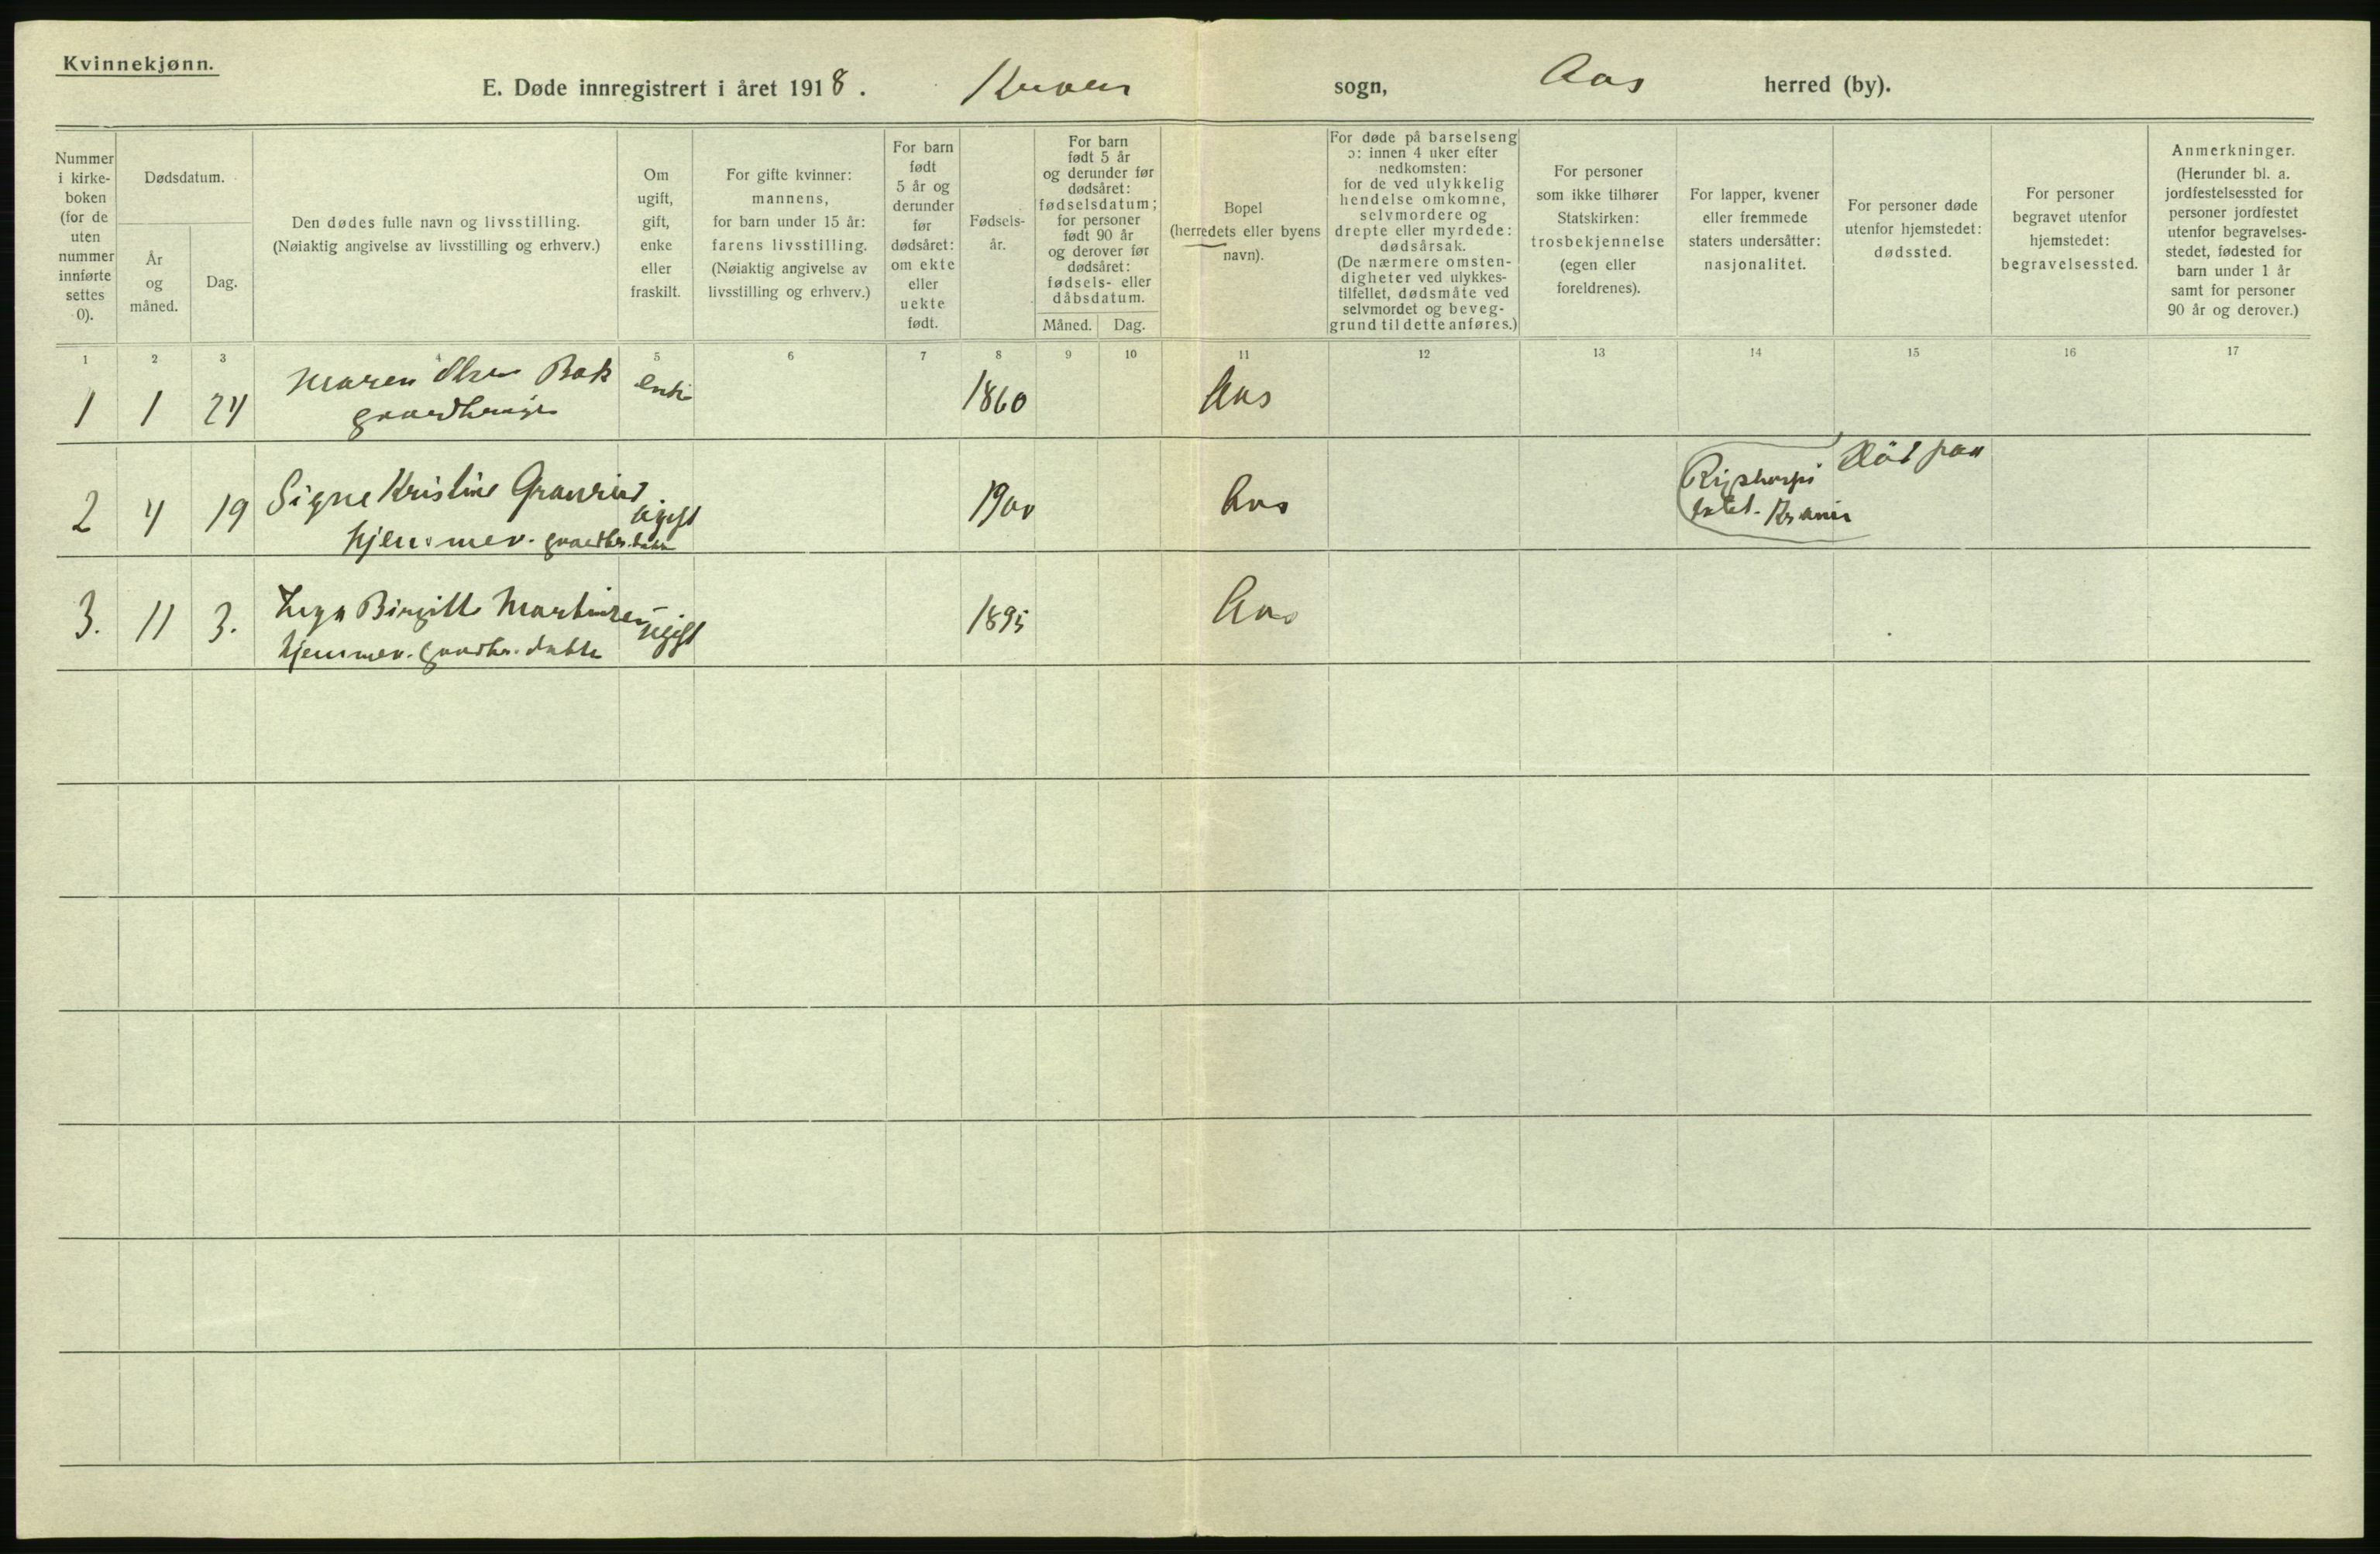 Kvinnekjønn.
E. Døde innregistrert i året 1918. Kroer sogn, Aas herred (by).
Nummer
i kirke-
boken
(for de
uten
nummer
innførte
settes
0).
Dødsdatum.
År
og
måned.
Dag.
Den dødes fulle navn og livsstilling.
(Nøiaktig angivelse av livsstilling og erhverv.)
Om
ugift,
gift,
enke
eller
fraskilt.
For gifte kvinner:
mannens,
for barn under 15 år:
farens livsstilling.
(Nøiaktig angivelse av
livsstilling og erhverv.)
For barn
født
5 år og
derunder
før
dødsåret:
om ekte
eller
uekte
født.
Fødsels-
år.
For barn
født 5 år
og derunder før
dødsåret:
fødselsdatum;
for personer
født 90 år
og derover før
dødsåret:
fødsels- eller
dåbsdatum.
Måned. Dag.
Bopel
(herredets eller byens
navn).
For døde på barselseng
ɔ: innen 4 uker efter
nedkomsten:
for de ved ulykkelig
hendelse omkomne,
selvmordere og
drepte eller myrdede:
dødsårsak.
(De nærmere omsten-
digheter ved ulykkes-
tilfellet, dødsmåte ved
selvmordet og beveg-
grund til dette anføres.)
For personer
som ikke tilhører
Statskirken:
trosbekjennelse
(egen eller
foreldrenes).
For lapper, kvener
eller fremmede
staters undersåtter:
nasjonalitet.
For personer døde
utenfor hjemstedet:
dødssted.
For personer
begravet utenfor
hjemstedet:
begravelsessted.
Anmerkninger.
(Herunder bl. a.
jordfestelsessted for
personer jordfestet
utenfor begravelses-
stedet, fødested for
barn under 1 år
samt for personer
90 år og derover.)
1 2 3 4 5 6 7 8 9 10 11 12 13 14 15 16 17
1 1 24 Maren Olsen Bak enke 1860 Aas
2 4 19 Signe Kristine ugift 1900 Aas Død paa
hjem. gaardbr. datter
3. 11 3. Birgitte Martinsen ugift 1895 Aas
gaardbr. datter